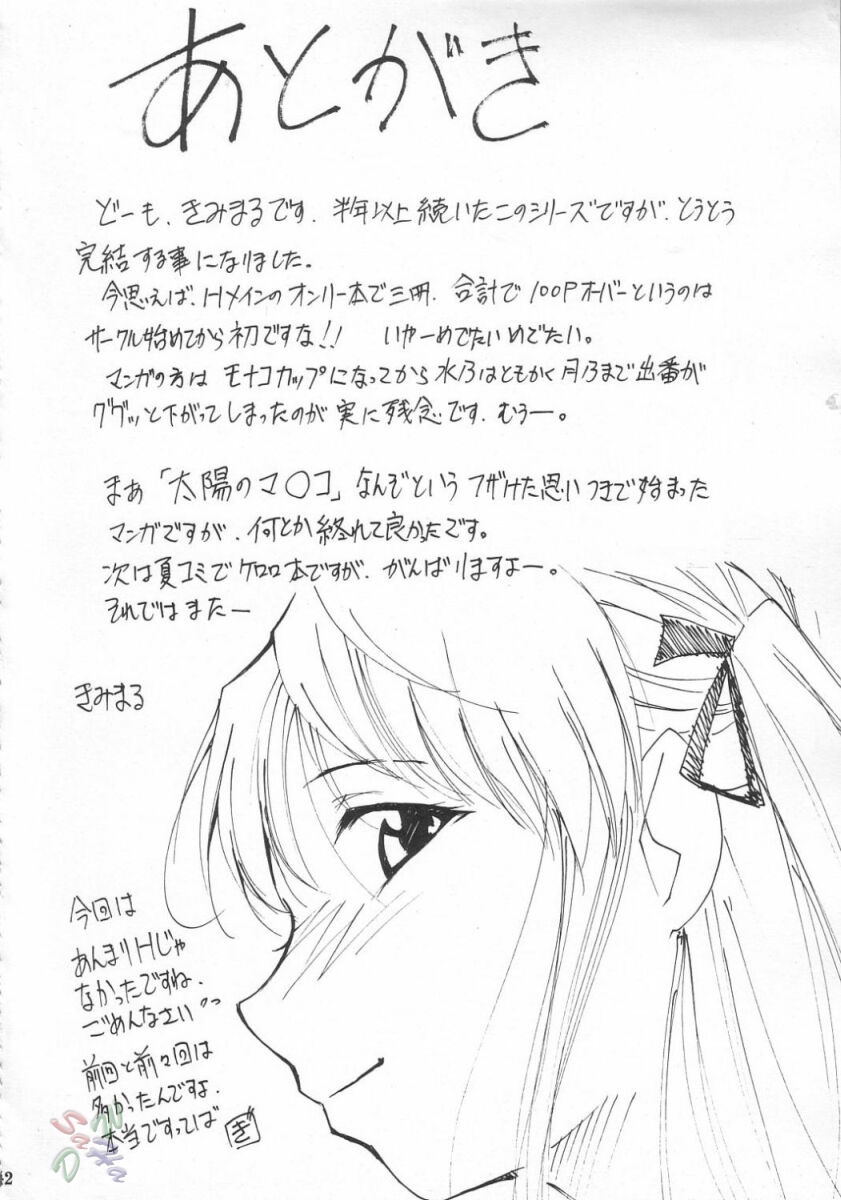 あとがき
どーも、きみまるです。半年以上続いたこのシリーズですが、とうとう
完結する事になりました。
今思えば、Hメインのオンリー本で三冊、合計で100Pオーバーというのは
サークル始めてから初ですな!! いやーめでたいめでたい。
マンガの方はモナコカップになってから水乃はともかく月乃まで出番が
ググッと下がってしまったのが実に残念です。むぅー。
まぁ「太陽のマ〇コ」なんぞというフザけた思いつきで始まった
マンガですが、何とか終れて良かったです。
次は夏コミでケロロ本ですが、がんばりますよー。
それではまたー
きみまる
今回は
あんまりHじゃ
なかったですね、
ごめんなさい
前回と前々回は
多かったんですよ、
本当ですってば
ぎ
42